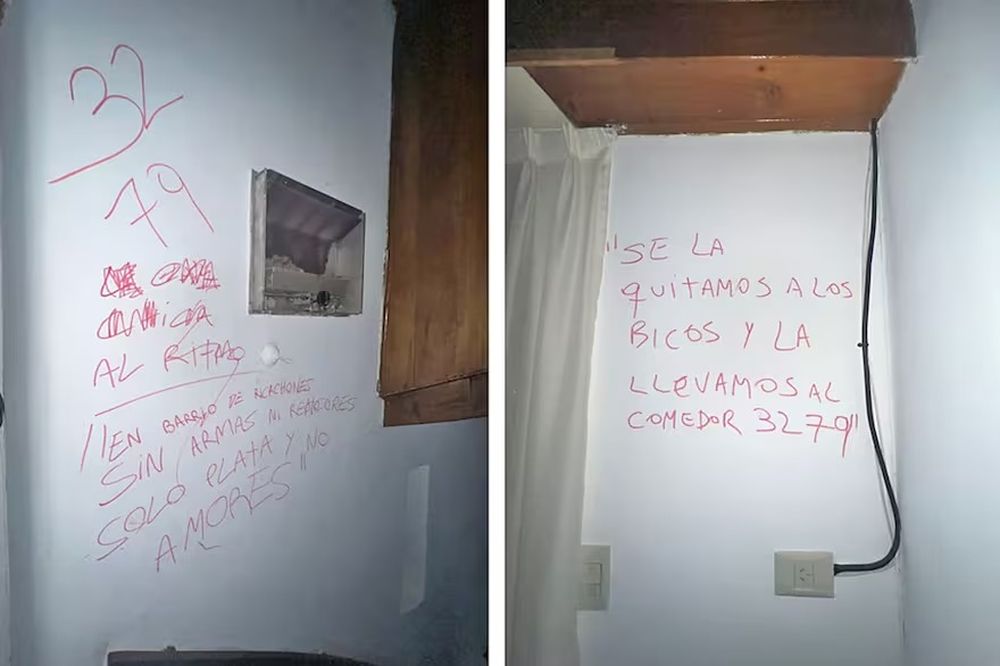 32
79
AL RITMO
"EN BARRIO DE RICACHONES
SIN ARMAS NI REnCORES
SOLO PLATA Y NO
AMORES"
"SE LA
quiTAMOS A LOS
BICOS Y LA
LLeVAMOS AL
COMEDOR 3279"